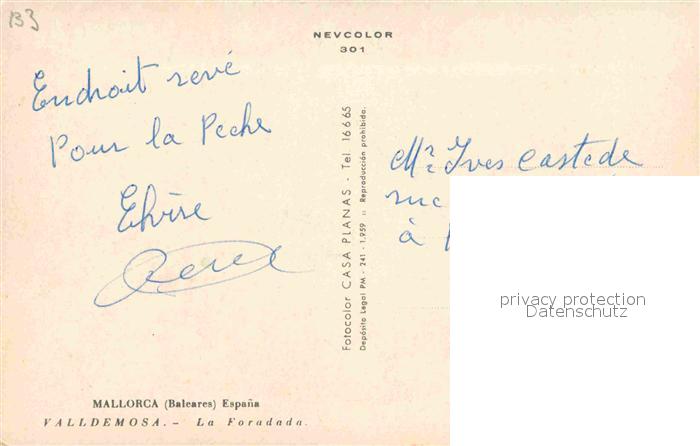 B3
NEVCOLOR
301
Endroit revé
Pour la Peche
Elvire
Fotocolor CASA PLANAS - Tel 16665
Depósito Legal PM - 241 - 1.959 :: Reproducción prohibida.
Mr Yves Castede
rue
à
privacy protection
Datenschutz
MALLORCA (Baleares) España
VALLDEMOSA. - La Foradada.